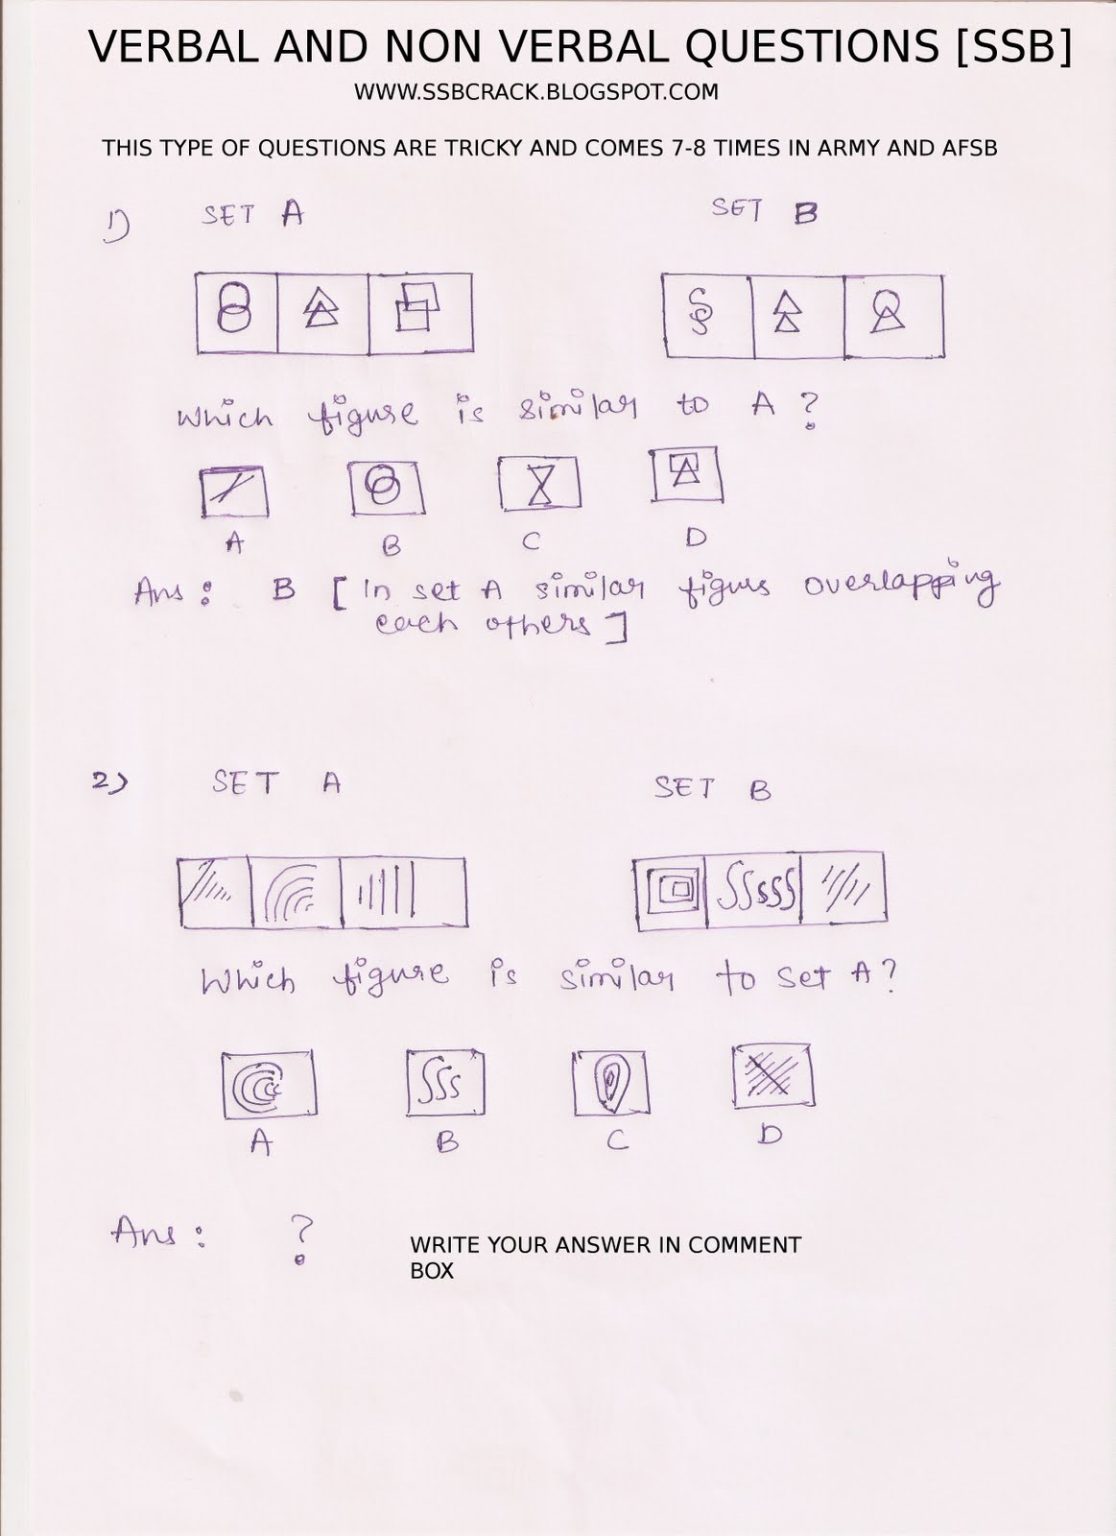 VERBAL AND NON VERBAL QUESTIONS [SSB]
WWW.SSBCRACK.BLOGSPOT.COM
THIS TYPE OF QUESTIONS ARE TRICKY AND COMES 7-8 TIMES IN ARMY AND AFSB
1) SET A SET B
Which figure is similar to A ?
A B C D
Ans : B [ In set A similar figurs overlapping
each others ]
2) SET A SET B
Which figure is similar to set A ?
A B C D
Ans : ?
WRITE YOUR ANSWER IN COMMENT
BOX